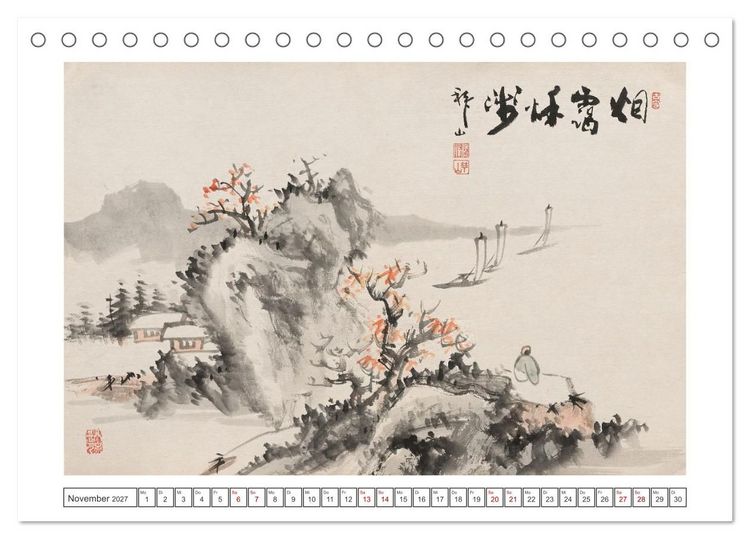 烟靄秋
山
November 2027
Mo Di Mi Do Fr Sa So Mo Di Mi Do Fr Sa So Mo Di Mi Do Fr Sa So Mo Di Mi Do Fr Sa So Mo Di
1 2 3 4 5 6 7 8 9 10 11 12 13 14 15 16 17 18 19 20 21 22 23 24 25 26 27 28 29 30